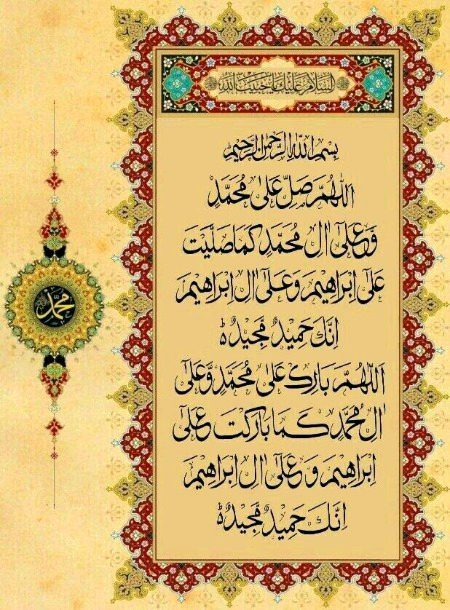 السلام عليك يا حبيب الله
بسم الله الرحمن الرحيم
اللهم صل على محمد
وعلى ال محمد كما صليت
على ابراهيم وعلى ال ابراهيم
انك حميد مجيد
اللهم بارك على محمد وعلى
ال محمد كما باركت وعلى
ابراهيم وعلى ال ابراهيم
انك حميد مجيد
محمد